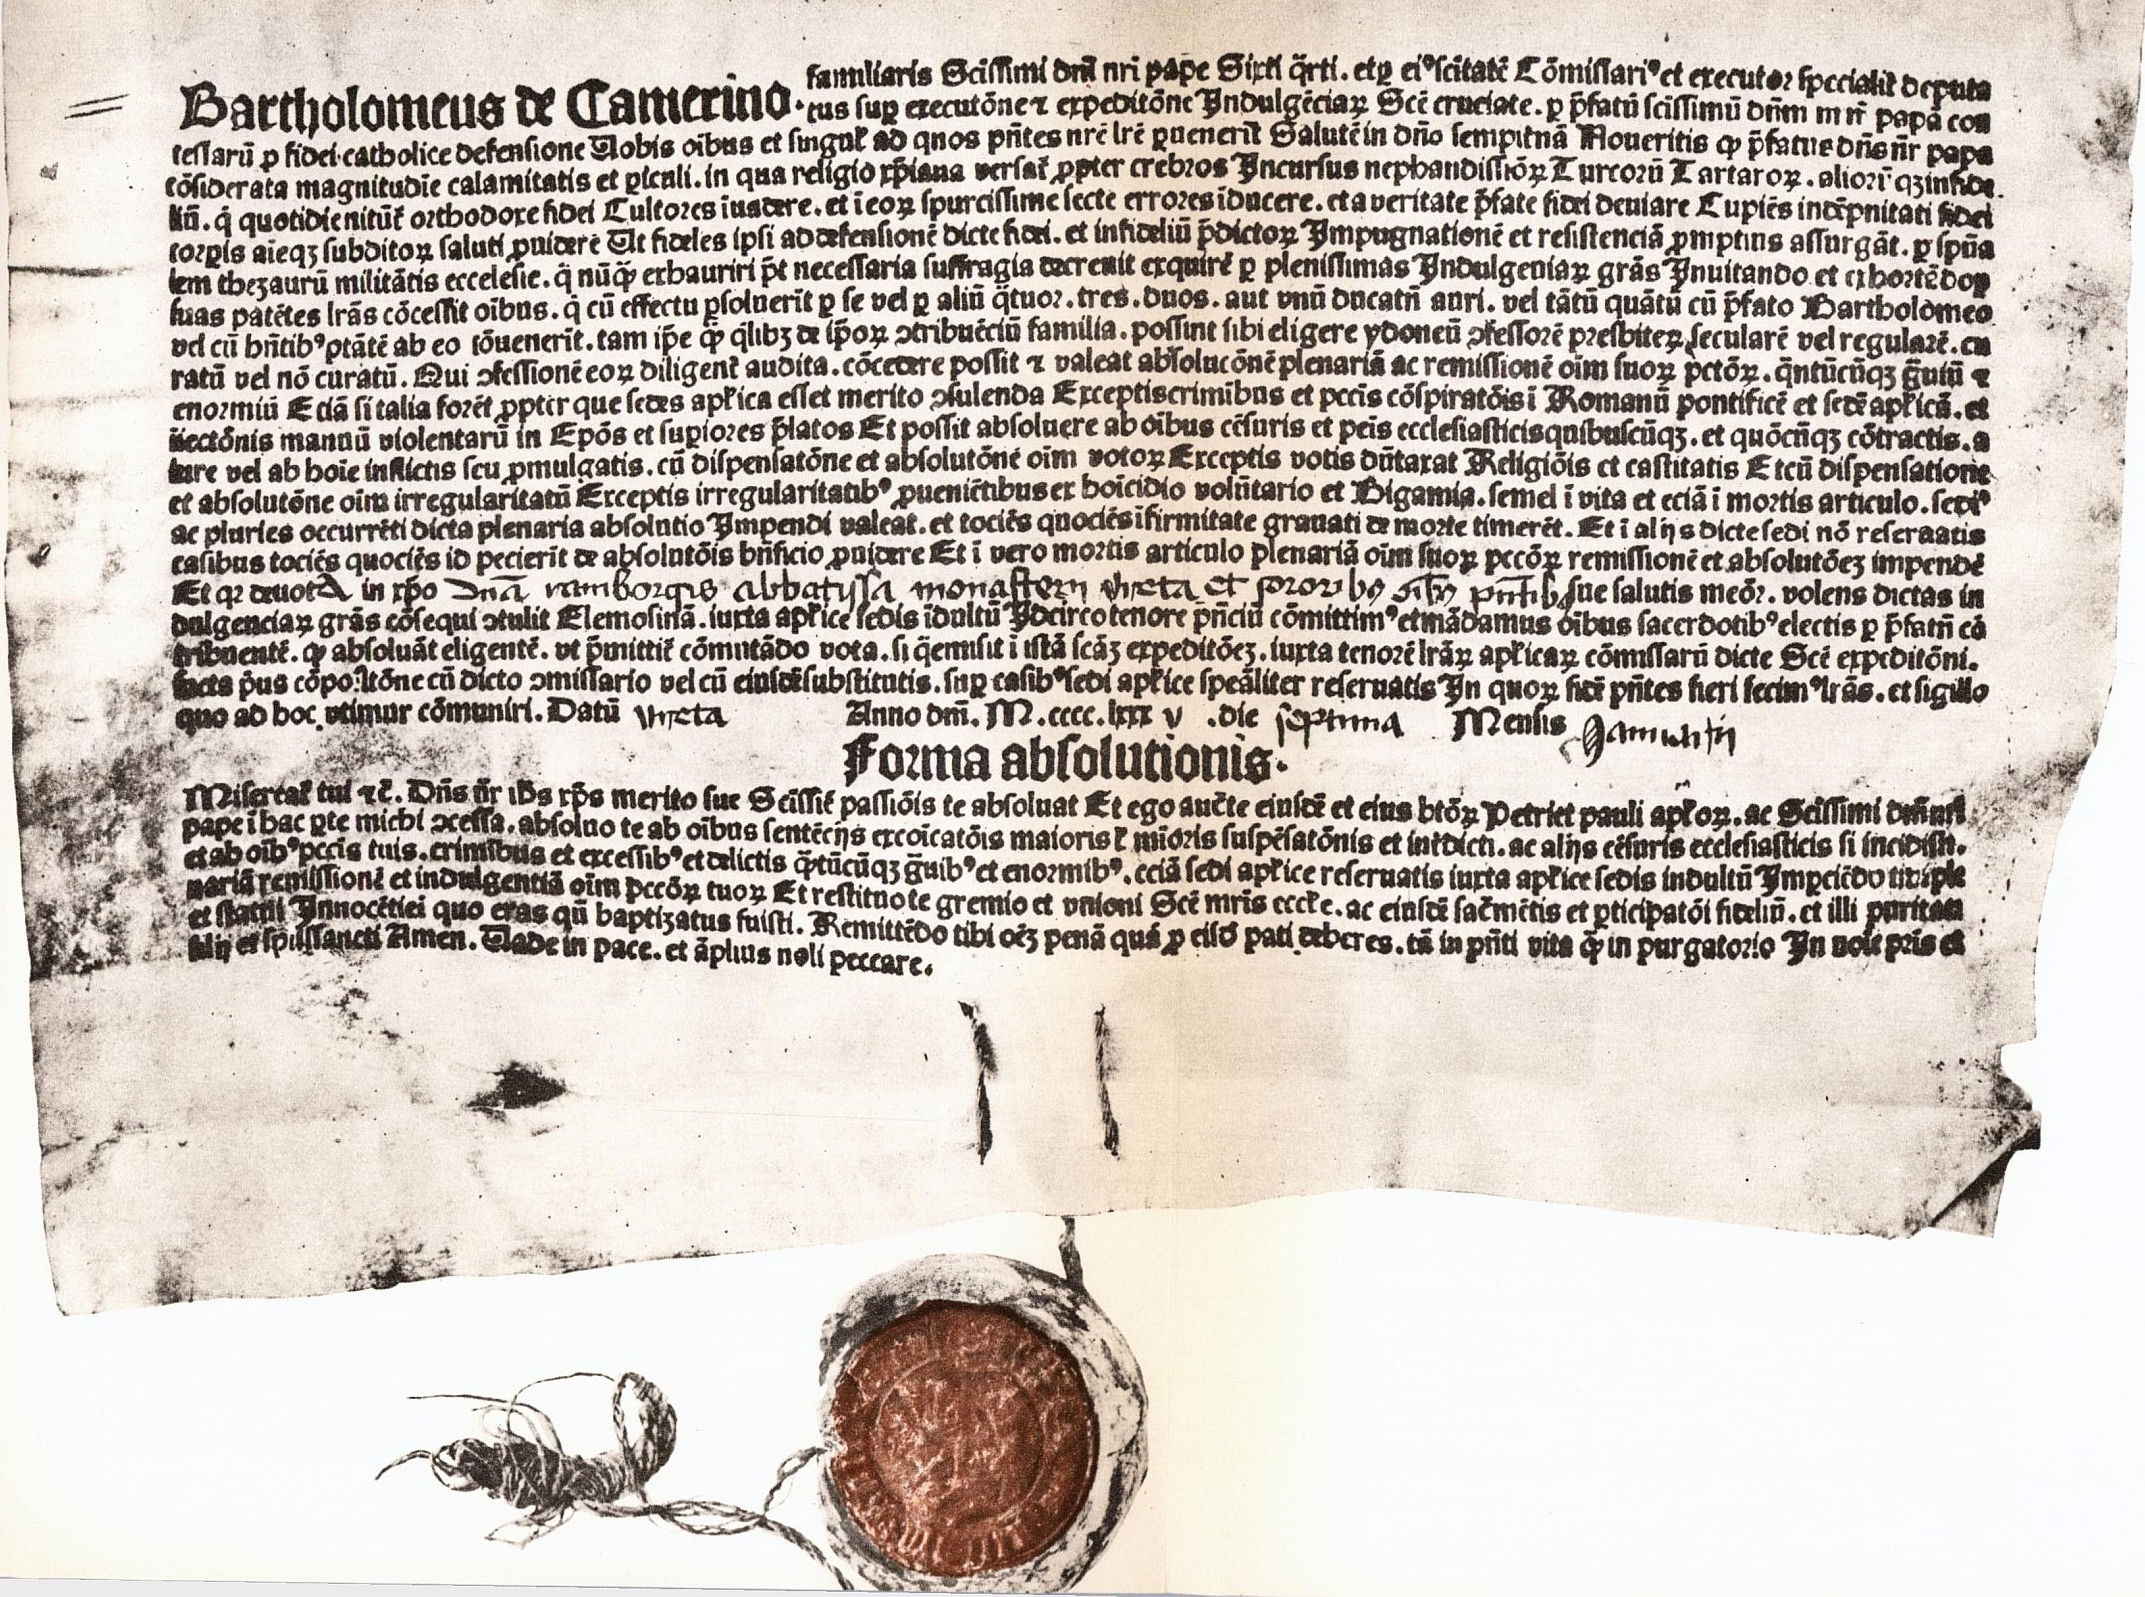 familiaris Scissimi dn̄i nri pape Sixti q̄rti. etꝑ eiꝰscitatē Cōmissariꝰ et executor specialit̄ deputa
Bartholomeus de Camerino. tus suꝑ executōne ⁊ expeditōne Indulgēciaꝝ Scē cruciate. ꝑ p̄fatū scissimū dn̄m nr̄m papā con
cessarū ꝓ fidei catholice defensione Uobis oībus et singul̄ ad quos pn̄tes nrē lrē ꝑuenerīt Salutē in dn̄o sempitnā Noueritis ꝙ p̄fatus dn̄s nr̄ papa
cōsiderata magnitudīe calamitatis et ꝑiculi. in qua religio xp̄iana versat̄ ꝓpter crebros Incursus nephandissīoꝝ Turcorū Tartaroꝝ. aliorūqꝫ infide
liū. q̇ quotidie nitūt̄ orthodoxe fidei Cultores īuadere. et ī eoꝝ spurcissime secte errores īducere. et a veritate p̄fate fidei deuiare Cupiēs indēpnitati fidei
corꝑis aīeqꝫ subditoꝝ saluti ꝓuidere Ut fideles ipsi ad defensionē dicte fidei. et infideliū p̄dictoꝝ Impugnationē et resistenciā ꝓmptius assurgāt. ꝑ spūa
lem thezaurū militātis eccelesie. q̄ nūqͣꝫ exhauriri pt̄ necessaria suffragia decreuit exquirē ꝑ plenissimas Indulgeniaꝝ grās Inuitando et exhortēdoꝑ
suas patētes lrās cōcessit oībus. q̇ cū effectu ꝑsoluerīt ꝑ se vel ꝑ aliū q̄tuor. tres. duos. aut vnū ducatū auri. vel tātū quātū cū p̄fato Bartholomeo
vel cū hn̄tibꝰ ptātē ab eo cōuenerīt. tam ip̄e qͣꝫ q̄libꝫ de ip̄oꝝ ↄtribuēciū familia. possint sibi eligere ydoneū ↄfessorē presbiteꝝ secularē vel regularē. cu
ratū vel nō curatū. Qui ↄfessionē eoꝝ diligent̄ audita. cōcedere possit ⁊ valeat absolucōnē plenariā ac remissionē oīm suoꝝ pctōꝝ. q̄ntūcūqꝫ g̊uiū ⁊
enormiū Eciā si talia forēt ꝓpter que sedes apl̄ica esset merito ↄsulenda Exceptis crimībus et pccīs cōspiratōis ī Romanū pontificē et sedē apl̄icā. et
iniectōnis manuū violentarū in Epōs et suꝑiores p̄latos Et possit absoluere ab oībus cēsuris et peīs ecclesiasticis quibuscūqꝫ. et quōcūqꝫ cōtractis. a
iure vel ab hoīe inflictis seu ꝓmulgatis. cū dispensatōne et absolutōne oīm votoꝝ Exceptis votis dūtaxat Religiōis et castitatis Et cū dispensatione
et absolutōne oīm irregularitatū Exceptis irregularitatibꝰ ꝓueniētibus ex hoīcidio volūtario et Bigamia. semel ī vita et eciā ī mortis articulo. sepiꝰ
ac pluries occurrēti dicta plenaria absolutio Impendi valeat. et tociēs quociēs īfirmitate grauati de morte timerēt. Et ī alijs dicte sedi nō reseruatis
casibus tociēs quociēs id pecierīt de absolutōis bn̄ficio ꝓuidere Et ī vero mortis articulo plenariā oīm suoꝝ pccōꝝ remissionē et absolutōeꝫ impendē
Et qꝛ deuota in xp̄o Dn̄a ramborgis abbatissa monasterij wreta et sororibꝫ sibi pn̄tibꝫ sue salutis meōr. volens dictas in
dulgenciaꝝ grās cōsequi ↄtulit Elemosinā. iuxta apl̄ice sedis īdultū Idcirco tenore pn̄ciū cōmittimꝰ et mādamus oībus sacerdotibꝰ electis ꝑ p̄fatū cō
tribuentē. ꝙ absoluāt eligentē. vt p̄mittit̄ cōmutādo vota. si q̄ emisit ī istā scāꝫ expeditōeꝫ. iuxta tenorē lrāꝝ apl̄icaꝝ cōmissarū dicte Scē expeditōni.
facta pͥus cōpo.itōne cū dicto ↄmissario vel cū eiusdē substitutis. suꝑ casibꝰ sedi apl̄ice speāliter reseruatis In quoꝝ fidē pn̄tes fieri fecimꝰ lrās. et sigillo
quo ad hoc vtimur cōmuniri. Datū wreta Anno dm̄. M.cccc.lxxx v .die septima Mensis Januarij
Forma absolutionis.
Misereat̄ tui ⁊c̄. Dn̄s nr̄ ihs xp̄s merito sue Scissīe passiōis te absoluat Et ego aucte eiusdē et eius btōꝝ Petri et pauli apl̄oꝝ. ac Scissimi dn̄i nri
pape ī hac ꝑte michi ↄcessa. absoluo te ab oībus sentēcijs excoīcatōis maioris l̄ mīoris suspēsatōnis et int̄dicti. ac alijs cēsuris ecclesiasticis si incidisti.
et ab oībꝰ pccīs tuis. crimībus et excessibꝰ et delictis qͣꝫtūcūqꝫ g̊uibꝰ et enormibꝰ. eciā sedi apl̄ice reseruatis iuxta apl̄ice sedis indultū Impēdēdo tibi ple
nariā remissionē et indulgentiā oīm pccōꝝ tuoꝝ Et restituo te gremio et vnioni Scē mris eccl̄e. ac eiusdē sacm̄ētis et ꝑticipatōi fideliū. et illi puritati
et statui Innocētiei quo eras qū baptizatus fuisti. Remittēdo tibi oēꝫ penā quā ꝓ eisd̄ pati deberes. tā in pn̄ti vita qͣꝫ in purgatorio In noīe pris et
filij et spūssancti Amen. Uade in pace. et āplius noli peccare.